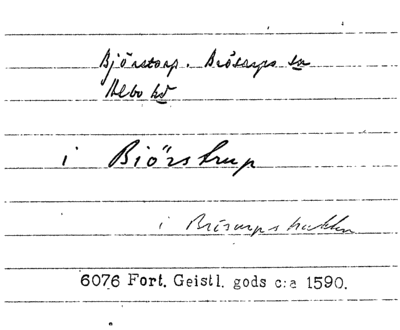 Björstorp. Brösarps sn
Albo hd
i Biörstrup
i Brösarps socken
6076 Fort. Geistl. gods c:a 1590.